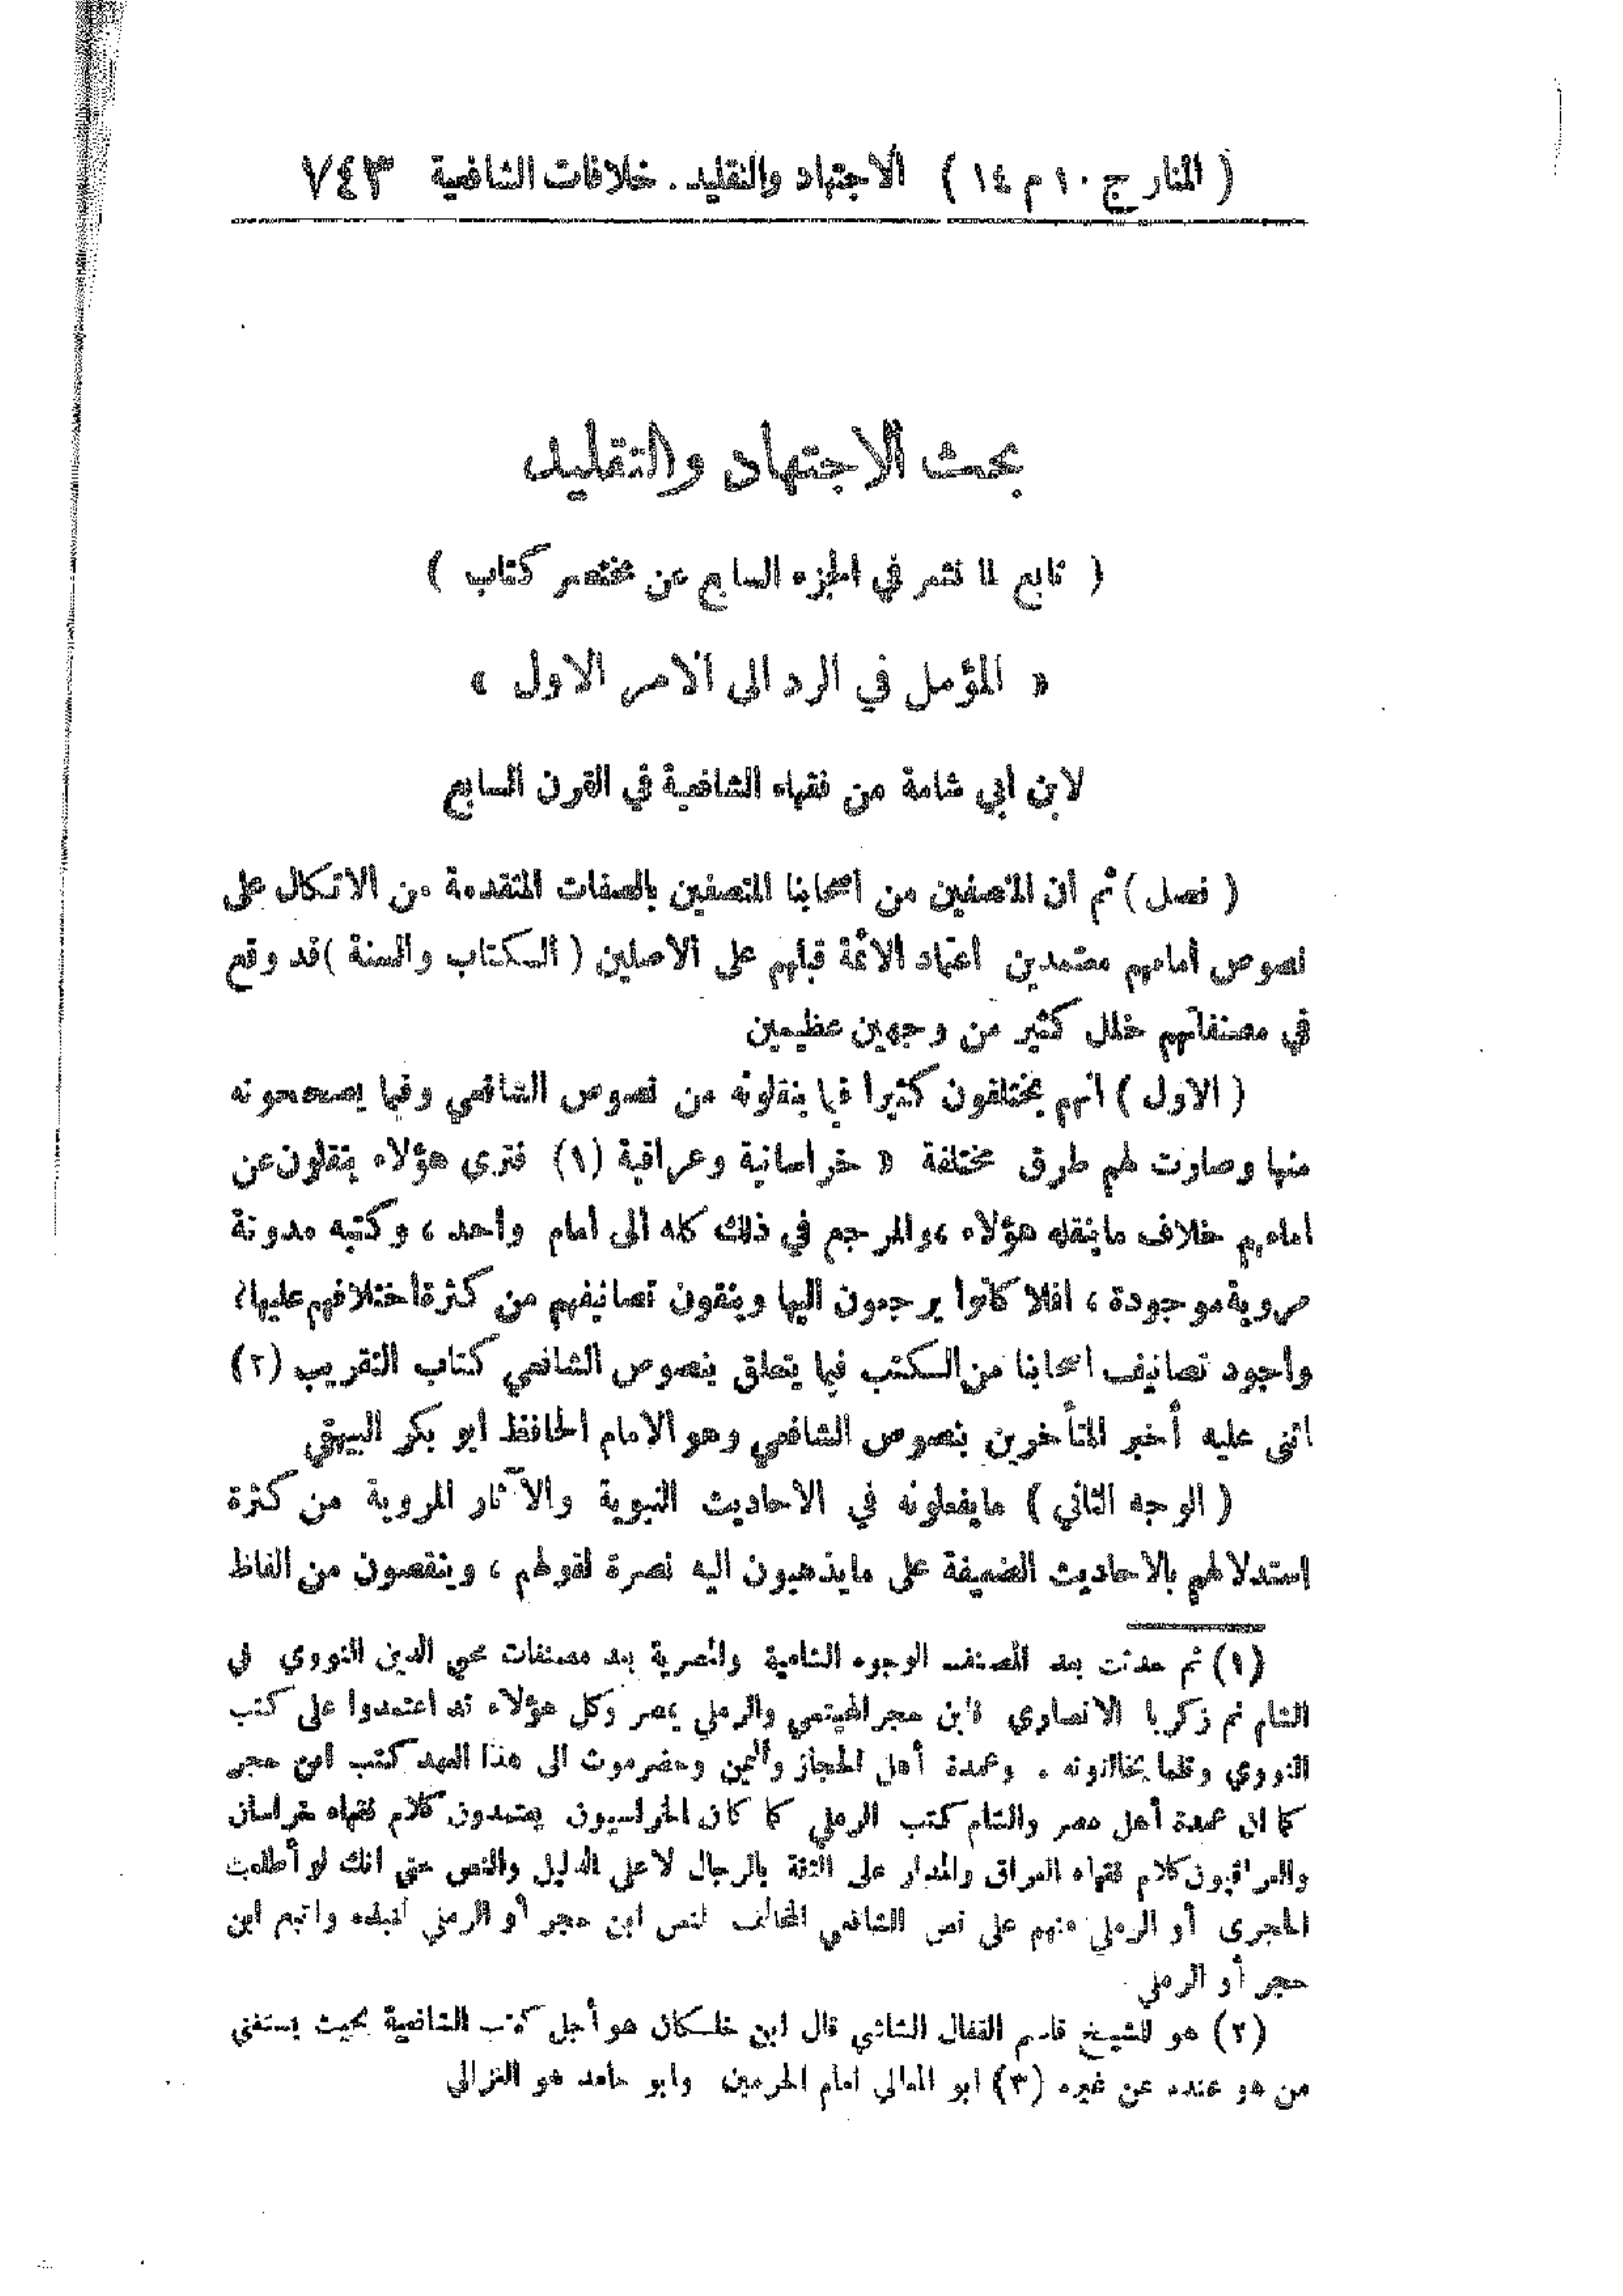 ( المنار ج ١٠ م ١٤ ) الاجتهاد والتقليد . خلافات الشافعية ٧٤٣
بحث الاجتهاد والتقليد
( تابع لما نشر في الجزء السابع عن مختصر كتاب )
« المؤمل في الرد الى الامر الاول »
لابن ابي شامة من فقهاء الشافعية في القرن السابع
( فصل ) ثم ان المتصفين من اصحابنا المتصفين بالصفات المتقدمة من الاتكال على
نصوص امامهم معتمدين اعتماد الائمة قبلهم على الاصلين ( الكتاب والسنة ) قد وقع
في مصنفاتهم خلل كثير من وجهين عظيمين
( الاول ) انهم يختلفون كثيرا فيما ينقلونه من نصوص الشافعي وفيما يصححونه
منها وصارت لهم طرق مختلفة « خراسانية وعراقية (١) فترى هؤلاء ينقلون عن
امامهم خلاف ما ينقله هؤلاء ، والمرجع في ذلك كله الى امام واحد ، وكتبه مدونة
مروية موجودة ، افلا كانوا يرجعون اليها وينقون تصانيفهم من كثرة اختلافهم عليها؟
واجود تصانيف اصحابنا من الكتب فيما يتعلق بنصوص الشافعي كتاب التقريب (٢)
اثنى عليه أخبر المتأخرين بنصوص الشافعي وهو الامام الحافظ ابو بكر البيهقي
( الوجه الثاني ) مايفعلونه في الاحاديث النبوية والآثار المروية من كثرة
استدلالهم بالاحاديث الضعيفة على مايذهبون اليه نصرة لقولهم ، وينقصون من الفاظ
(١) ثم حدثت بعد المصنف الوجوه الشامية والمصرية بعد مصنفات محي الدين النووي في
الشام ثم زكريا الانصاري فابن حجر الهيتمي والرملي بمصر وكل هؤلاء قد اعتمدوا على كتب
النووي وقلما يخالفونه . وعمدة أهل الحجاز واليمن وحضرموت الى هذا العهد كتب ابن حجر
كما ان عمدة أهل مصر والشام كتب الرملي كما كان الخراسيون يعتمدون كلام فقهاء خراسان
والعراقيون كلام فقهاء العراق والمدار على الثقة بالرجال لا على الدليل والنص حتى انك لو أطلعت
الحجرى أو الرملي منهم على نص الشافعي المخالف لنص ابن حجر أو الرملي لنبذه واتبع ابن
حجر أو الرملي
(٢) هو للشيخ قاسم القفال الشاشي قال ابن خلكان هو أجل كتب الشافعية بحيث يستغني
من هو عنده عن غيره (٣) ابو المعالي امام الحرمين وابو حامد هو الغزالي